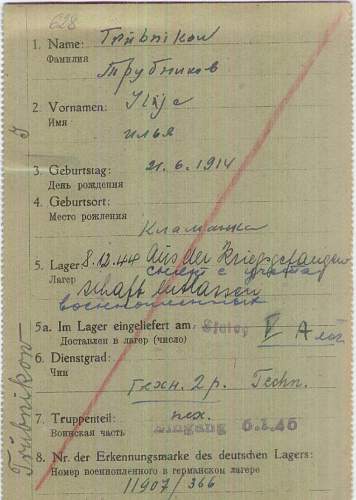 628
1. Name: Trübnikow
Фамилия
Трубников
2. Vornamen: Ilija
Имя
Илья
3. Geburtstag: 21.6.1914
День рождения
4. Geburtsort:
Место рождения
5. Lager 8.12.44 Aus der Kriegsgefangen
Лагер снят с учета
schaft entlassen
военнопленных
5a. Im Lager eingeliefert am V A
Доставлен в лагер (число)
6. Dienstgrad:
Чин
техн. 2 р. Techn.
7. Truppenteil:
Воинская часть Eingang
8. Nr. der Erkennungsmarke des deutschen Lagers:
Номер военнопленного в германском лагере
11907/366
Trübnikow J